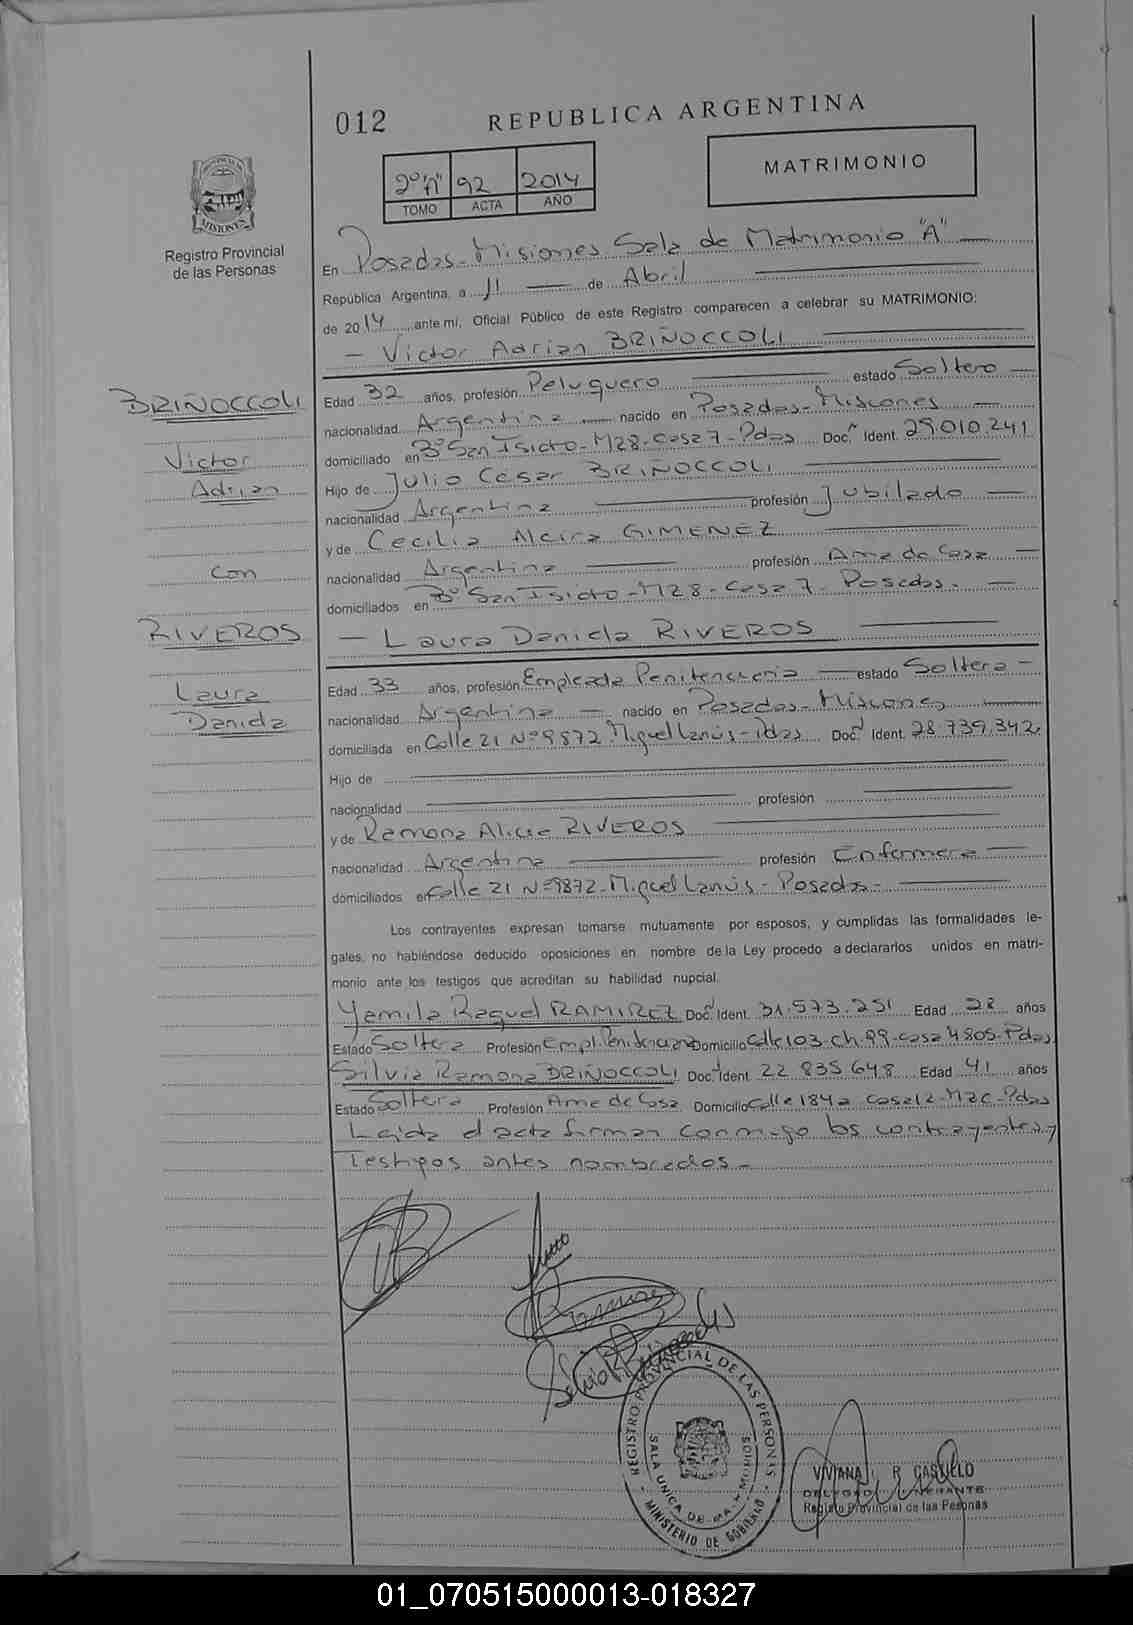 012 REPUBLICA ARGENTINA
2º "A" 92 2014
TOMO ACTA AÑO
MATRIMONIO
PROVINCIA DE MISIONES
Registro Provincial
de las Personas
En Posadas-Misiones Sala de Matrimonio "A"
República Argentina, a 11 de Abril
de 2014 ante mí, Oficial Público de este Registro comparecen a celebrar su MATRIMONIO:
- Victor Adrian BRIÑOCCOLI
BRIÑOCCOLI
Victor
Adrian
con
RIVEROS
Laura
Daniela
Edad 32 años, profesión Peluquero estado Soltero
nacionalidad Argentina nacido en Posadas-Misiones
domiciliado en Bº San Isidro-M28-casa 7-Pdas Doc. Ident. 29.010.241
Hijo de Julio Cesar BRIÑOCCOLI
nacionalidad Argentina profesión Jubilado
y de Cecilia Alcira GIMENEZ
nacionalidad Argentina profesión Ama de Casa
domiciliados en Bº San Isidro-M28-casa 7-Posadas.
- Laura Daniela RIVEROS
Edad 33 años, profesión Empleada Penitenciaria estado Soltera
nacionalidad Argentina nacido en Posadas-Misiones
domiciliada en Calle 21 Nº 9872 Miguel Lanús-Pdas Doc. Ident. 28.739.342
Hijo de
nacionalidad profesión
y de Ramona Alicia RIVEROS
nacionalidad Argentina profesión Enfermera
domiciliados en Calle 21 Nº 9872-Miguel Lanús-Posadas-
Los contrayentes expresan tomarse mutuamente por esposos, y cumplidas las formalidades le-
gales, no habiéndose deducido oposiciones en nombre de la Ley procedo a declararlos unidos en matri-
monio ante los testigos que acreditan su habilidad nupcial.
Yamila Raquel RAMIREZ Doc. Ident. 31.573.251 Edad 28 años
Estado Soltera Profesión Empl. Penitenciaria Domicilio Calle 103-ch.99-casa 4805-Pdas
Silvia Ramona BRIÑOCCOLI Doc. Ident. 22 835 648 Edad 41 años
Estado Soltera Profesión Ama de Casa Domicilio Calle 184a casa12-M2c-Pdas
Leida el acta firman conmigo los contrayentes y
Testigos antes nombrados-
REGISTRO PROVINCIAL DE LAS PERSONAS
SALA UNICA DE MATRIMONIOS
- MINISTERIO DE GOBIERNO -
VIVIANA R. CASTILLO
Registro Provincial de las Personas
01_070515000013-018327